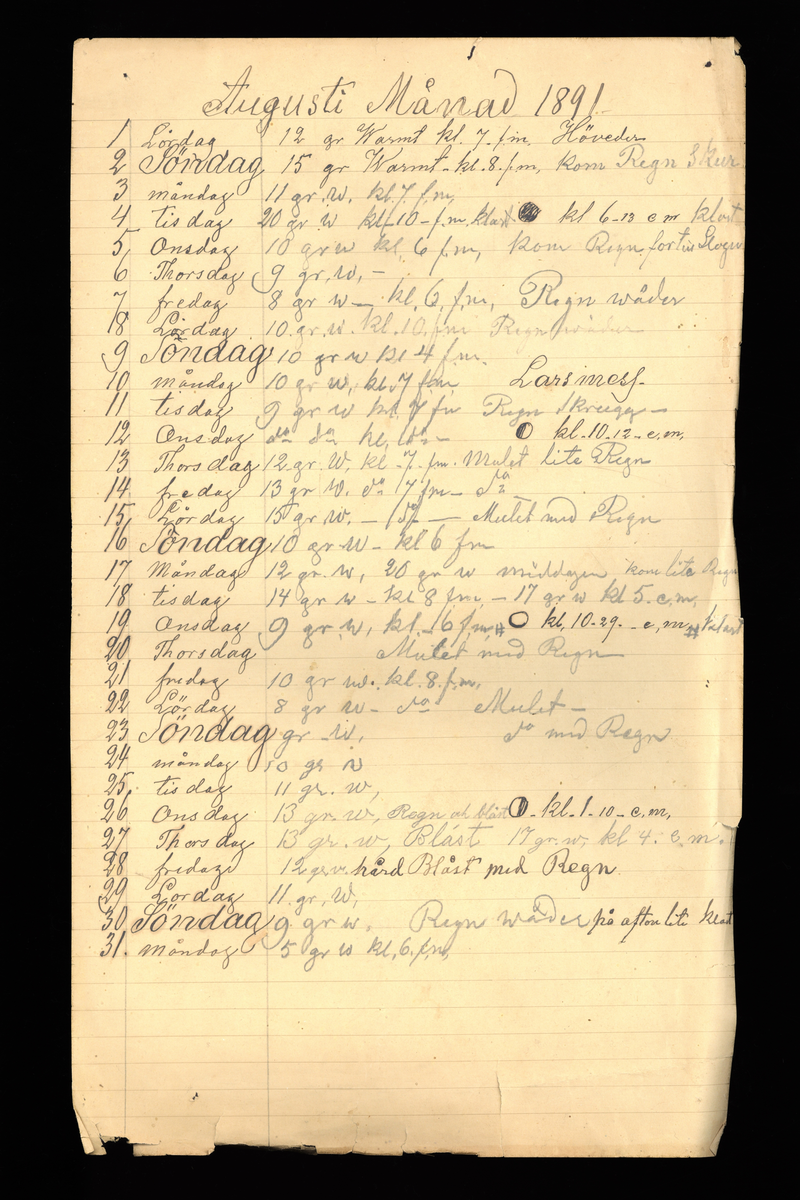 Augusti Månad 1891
1 Lördag 12 gr Warmt kl. 7. f.m. Höväder
2 Söndag 15 gr Warmt - kl. 8. f.m, kom Regn Skur
3 måndag 11 gr. w, kl. 7 f.m,
4 tisdag 20 gr w kl - 10 - f.m. klart kl 6-13 e m klart
5, Onsdag 10 gr w kl, 6 f.m, kom Regn
6 Thorsdag 9 gr, w, -
7 fredag 8 gr w — kl. 6, f.m, Regn wäder
18 Lördag 10. gr. w. kl. 10. f.m Regn wäder
9 Söndag 10 gr w kl 4 f.m.
10 måndag 10 gr w, kl. 7 f.m Larsmess.
11 tisdag 9 gr w kl. 7 fm Regn Skrugg -
12 Onsdag do do kl, do - kl. 10-12 - e, m,
13 Thorsdag 12 gr. W, kl - 7. fm. Mulet lite Regn
14 fredag 13 gr w. do 7 fm - do
15, Lördag 15 gr w. — do — Mulet med Regn
16 Söndag 10 gr w - kl 6 fm
17 Måndag 12 gr. w, 20 gr w middagen kom lite Regn
18 tisdag 14 gr w - kl 8 fm, - 17 gr w kl 5. e, m,
19 Onsdag 9 gr w, kl. - 6 f.m, # kl, 10-29. - e, m, # klart
20 Thorsdag Mulet med Regn
21 fredag 10 gr w. kl. 8. f.m,
22 Lördag 8 gr w - do Mulet -
23 Söndag gr w, do med Regn
24 måndag 10 gr w
25, tisdag 11 gr. w,
26 Onsdag 13 gr. w, Regn och blåst - kl. 1. 10 - e. m,
27 Thorsdag 13 gr. w, Blåst 17 gr. w, kl 4. e. m.
28 fredag 12 gr w. hård Blåst med Regn
29 Lördag 11. gr, w,
30 Söndag 9 gr w. Regn wäder på afton lite klart
31. måndag 5 gr w kl, 6. f.m,